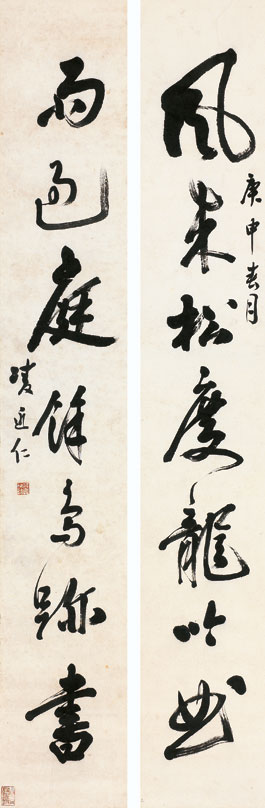 風來松度龍吟曲
庚申春月
雨過庭餘鳥跡書
凌近仁